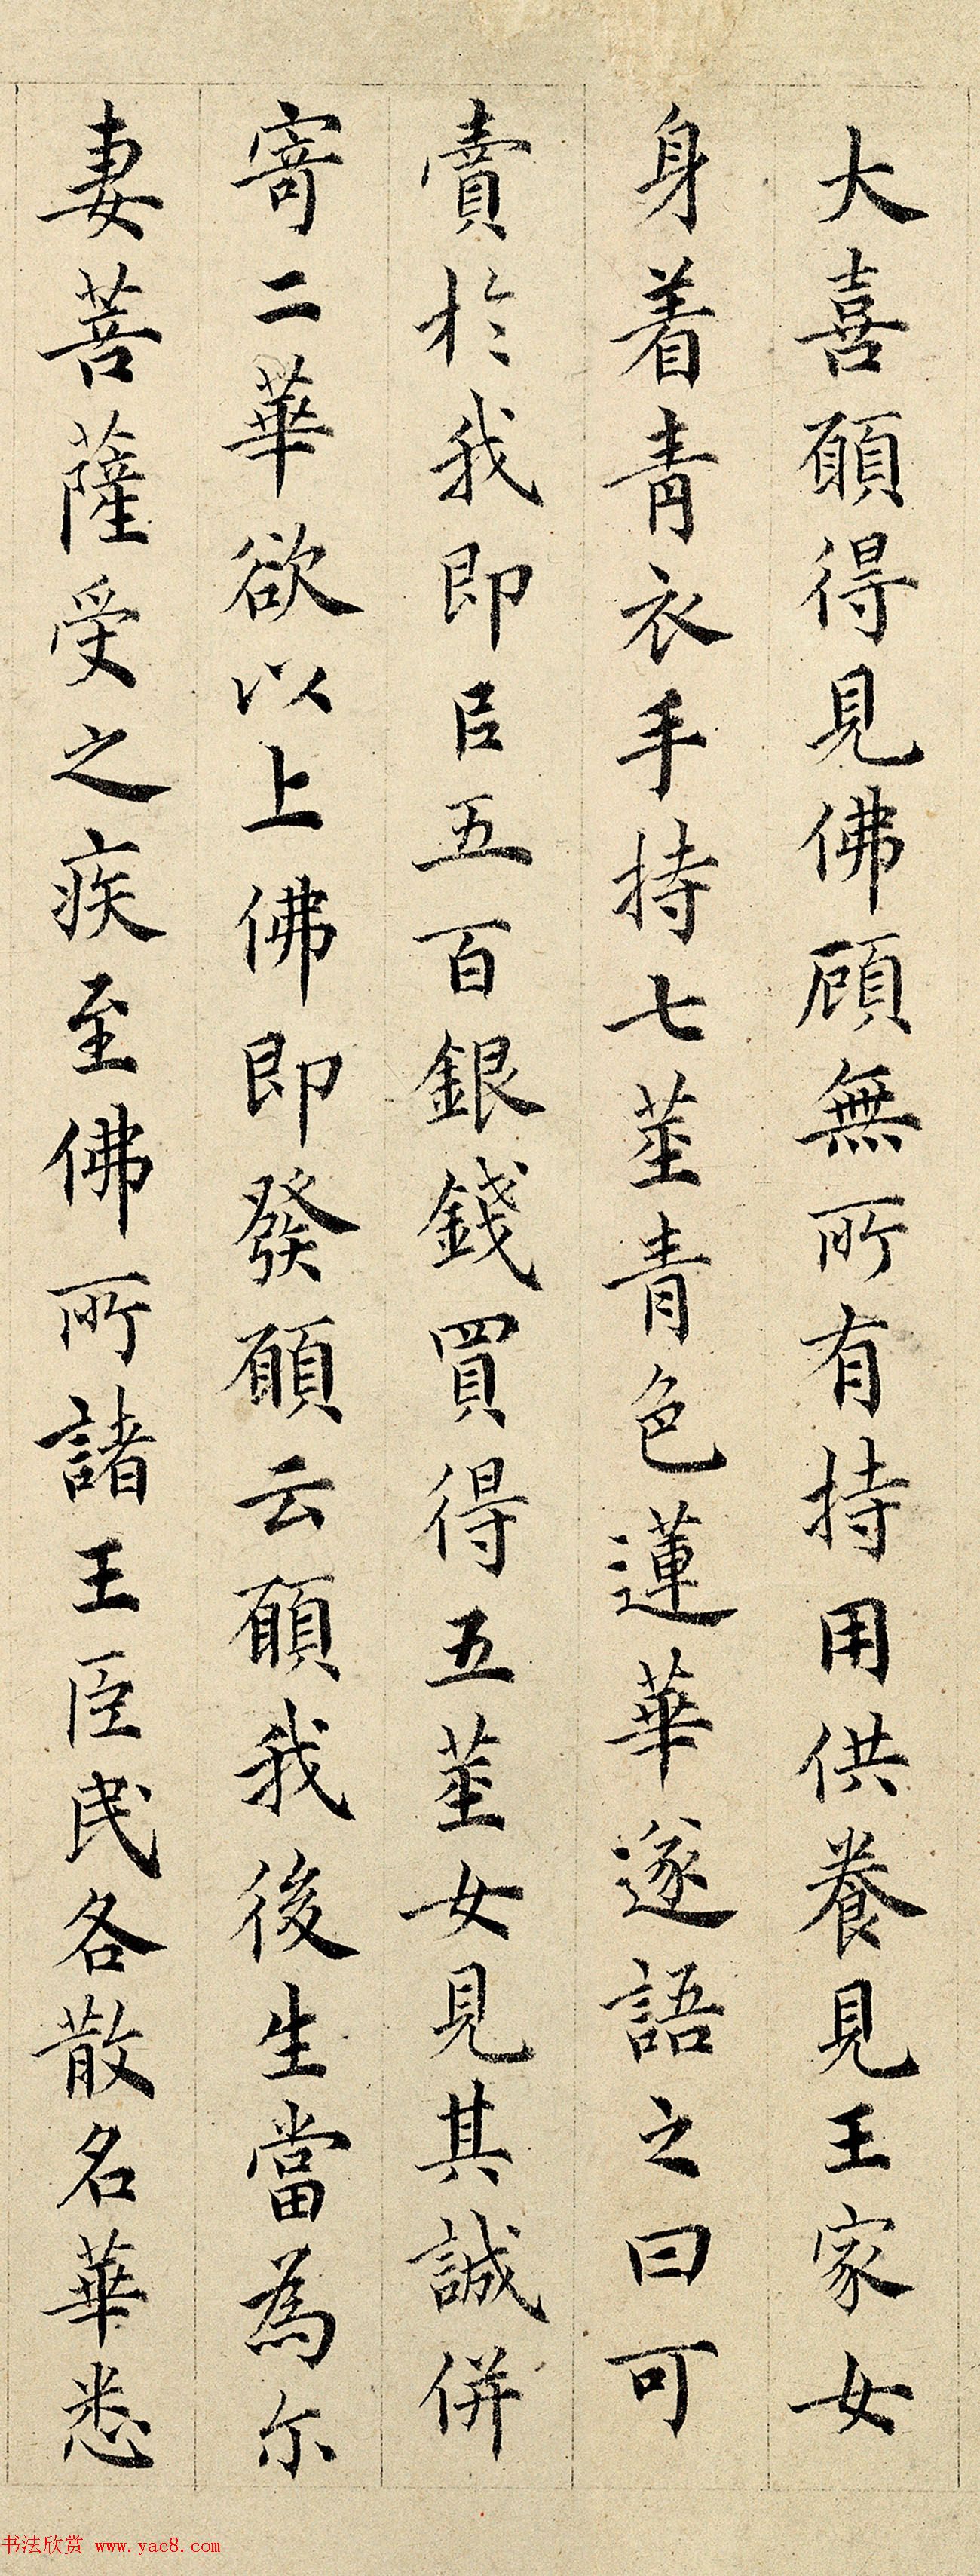 大喜願得見佛顧無所有持用供養見王家女
身着青衣手持七莖青色蓮華遂語之曰可
賣於我即㠯五百銀錢買得五莖女見其誠併
寄二華欲以上佛即發願云願我後生當為尔
妻菩薩受之疾至佛所諸王臣民各散名華悉
书法欣赏 www.yac8.com